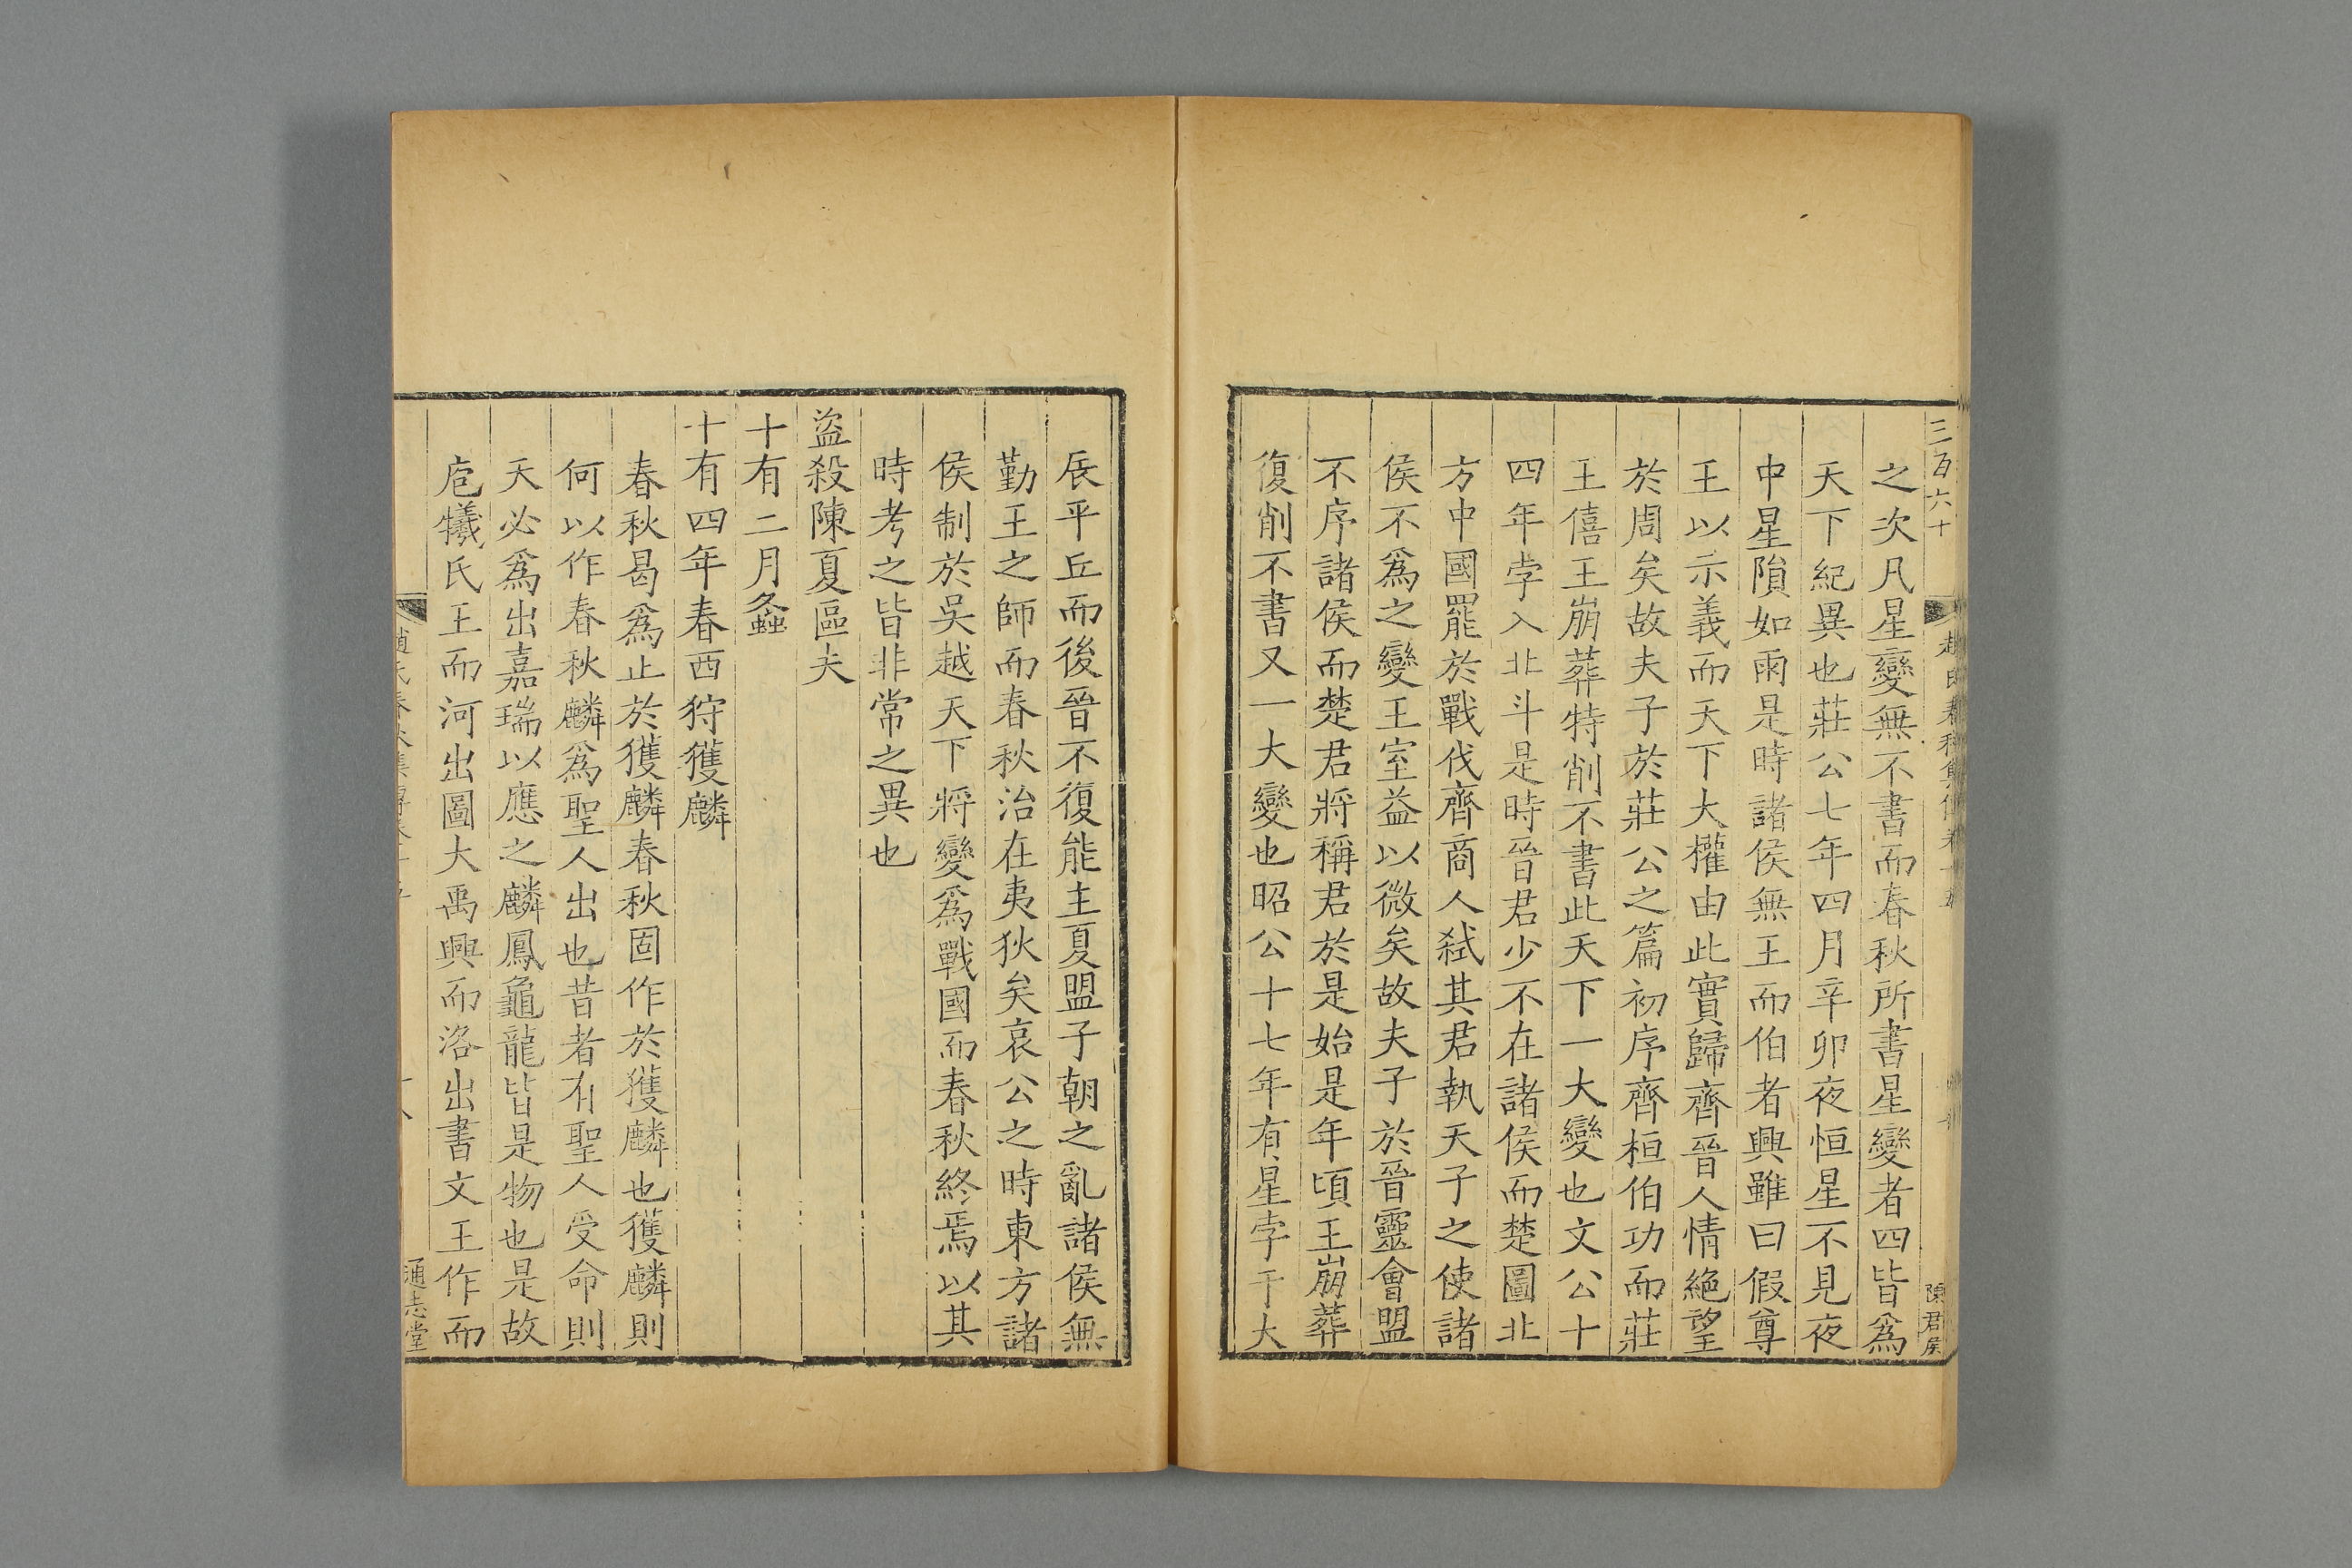 三百六十
趙氏春秋集傳卷十五
陳君侯
之次凡星變無不書而春秋所書星變者四皆爲
天下紀異也莊公七年四月辛卯夜恒星不見夜
中星隕如雨是時諸侯無王而伯者興雖曰假尊
王以示義而天下大權由此實歸齊晉人情絶望
於周矣故夫子於莊公之篇初序齊桓伯功而莊
王僖王崩葬特削不書此天下一大變也文公十
四年孛入北斗是時晉君少不在諸侯而楚圖北
方中國罷於戰伐齊商人弑其君執天子之使諸
侯不爲之變王室益以微矣故夫子於晉靈會盟
不序諸侯而楚君將稱君於是始是年頃王崩葬
復削不書又一大變也昭公十七年有星孛于大
辰平丘而後晉不復能主夏盟子朝之亂諸侯無
勤王之師而春秋治在夷狄矣哀公之時東方諸
侯制於吳越天下將變爲戰國而春秋終焉以其
時考之皆非常之異也
盜殺陳夏區夫
十有二月螽
十有四年春西狩獲麟
春秋曷爲止於獲麟春秋固作於獲麟也獲麟則
何以作春秋麟爲聖人出也昔者有聖人受命則
天必爲出嘉瑞以應之麟鳳龜龍皆是物也是故
庖犧氏王而河出圖大禹興而洛出書文王作而
趙氏春秋集傳卷十五
十八
通志堂